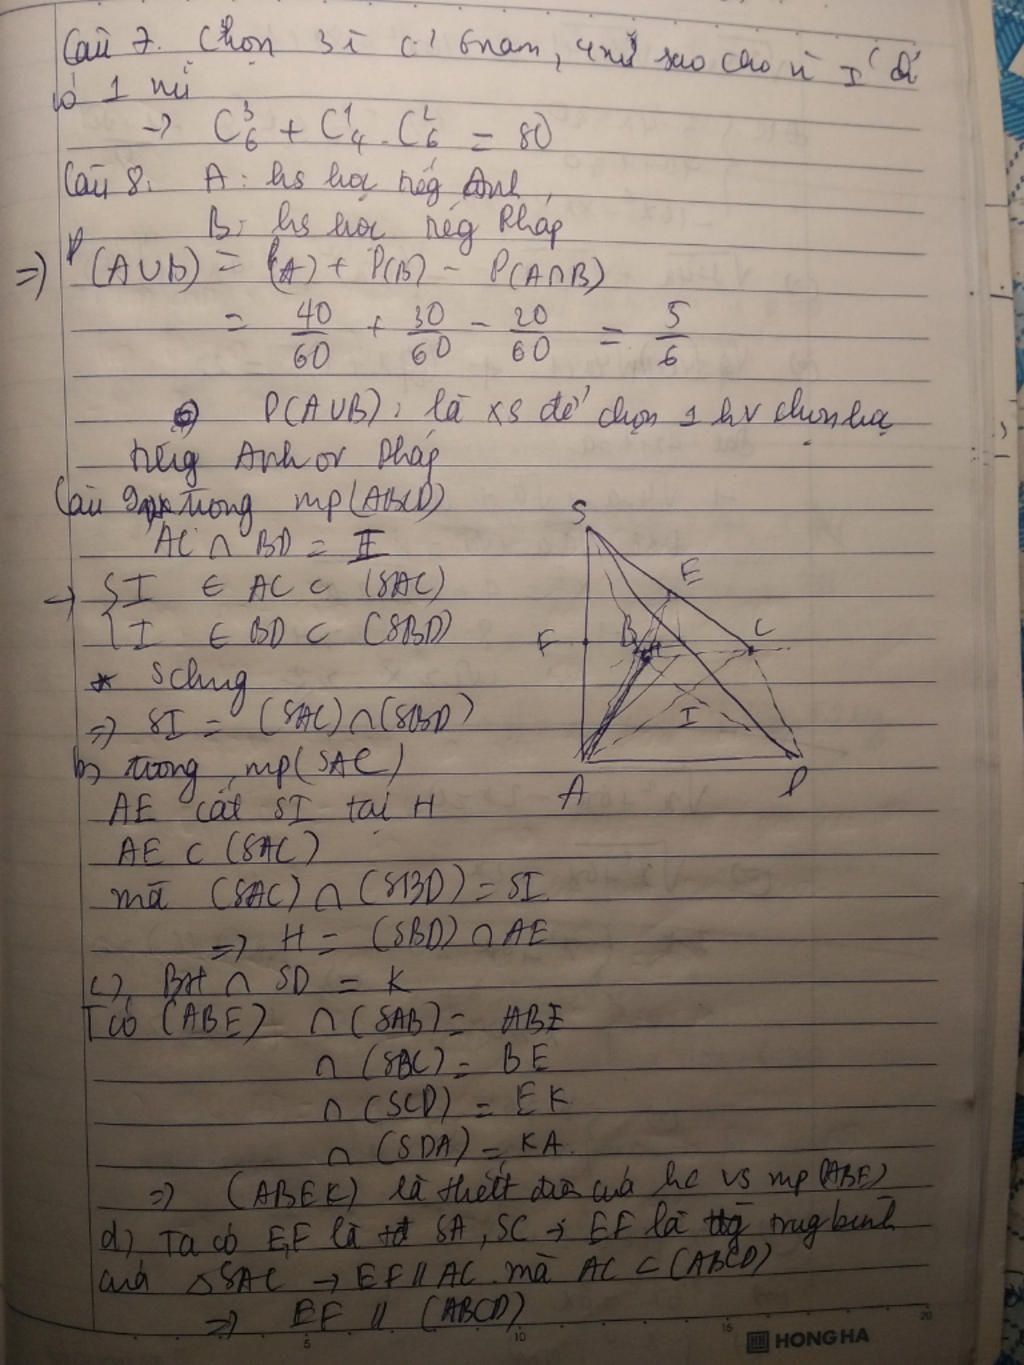 Câu 7. Chọn 3 6 nam, 4 nữ sao cho
1 nữ
→ C₆³ + C₄¹ . C₆² = 80
Câu 8. A: hs học tiếng Anh
B: hs học tiếng Pháp
⇒ P(A∪B) = P(A) + P(B) - P(A∩B)
= 40/60 + 30/60 - 20/60 = 5/6
P(A∪B): là xs để chọn 1 hv chọn học
tiếng Anh or Pháp
Câu 9 trong mp(ABCD)
AC ∩ BD = I
→ { I ∈ AC ⊂ (SAC)
I ∈ BD ⊂ (SBD)
* S chung
⇒ SI = (SAC) ∩ (SBD)
b) trong mp(SAC)
AE cắt SI tại H
AE ⊂ (SAC)
mà (SAC) ∩ (SBD) = SI
⇒ H = (SBD) ∩ AE
c), BH ∩ SD = K
Tcó (ABE) ∩ (SAB) =
∩ (SBC) = BE
∩ (SCD) = EK
∩ (SDA) = KA.
⇒ (ABEK) là thiết diện của hc vs mp (ABE)
d) Ta có E,F là tđ SA, SC → EF là đg trug bình
của △SAC → EF // AC mà AC ⊂ (ABCD)
⇒ EF // (ABCD)
S
E
F
B
H
C
I
A
D
5 10 15 20
HONG HA